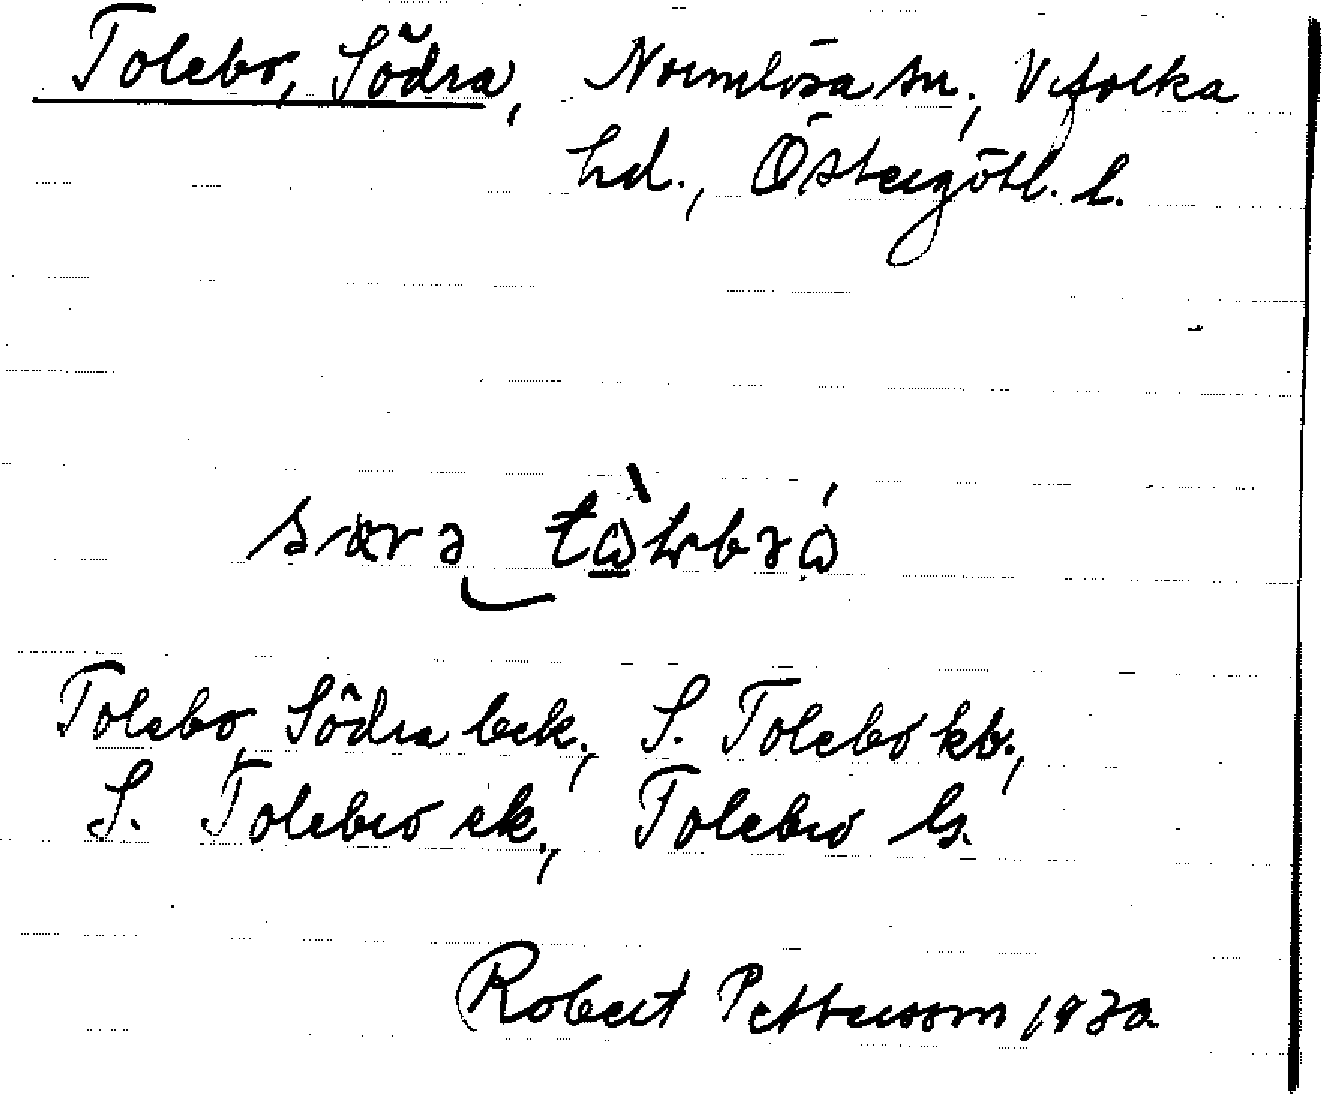 Tolebo, Södra, Normlösa sn., Vifolka
hd., Östergötl. l.
Tolebo, Södra bek., S. Tolebo kb.,
S. Tolebo ek., Tolebro ls.
Robert Pettersson 1930